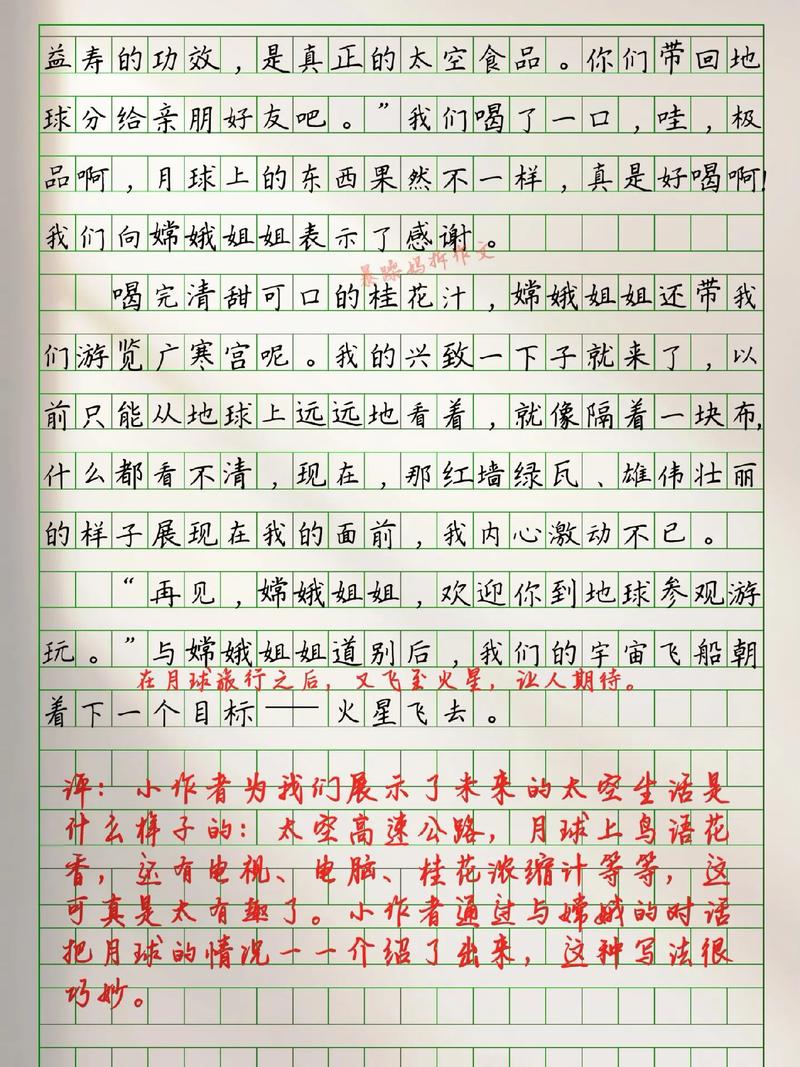 益寿的功效，是真正的太空食品。你们带回地
球分给亲朋好友吧。”我们喝了一口，哇，极
品啊，月球上的东西果然不一样，真是好喝啊！
我们向嫦娥姐姐表示了感谢。
暴躁妈拆作文
喝完清甜可口的桂花汁，嫦娥姐姐还带我
们游览广寒宫呢。我的兴致一下子就来了，以
前只能从地球上远远地看着，就像隔着一块布，
什么都看不清，现在，那红墙绿瓦、雄伟壮丽
的样子展现在我的面前，我内心激动不已。
“再见，嫦娥姐姐，欢迎你到地球参观游
玩。”与嫦娥姐姐道别后，我们的宇宙飞船朝
在月球旅行之后，又飞至火星，让人期待。
着下一个目标——火星飞去。
评：小作者为我们展示了未来的太空生活是
什么样子的：太空高速公路，月球上鸟语花
香，还有电视、电脑、桂花浓缩计等等，这
可真是太有趣了。小作者通过与嫦娥的对话
把月球的情况一一介绍了出来，这种写法很
巧妙。